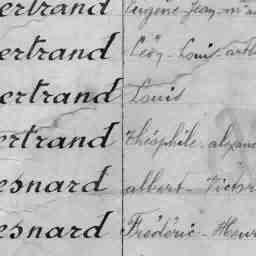 ertrand Eugène-Jean-m
ertrand Léon-Louis-arth
ertrand Louis
ertrand Théophile-alexand
esnard albert-Victor
esnard Frédéric-Henri